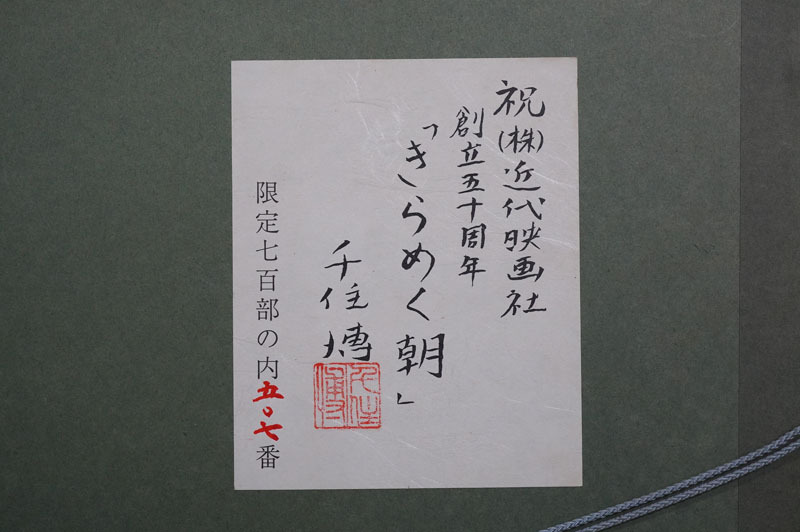 祝(株)近代映画社
創立五十周年
「きらめく朝」
千住博
限定七百部の内五〇七番